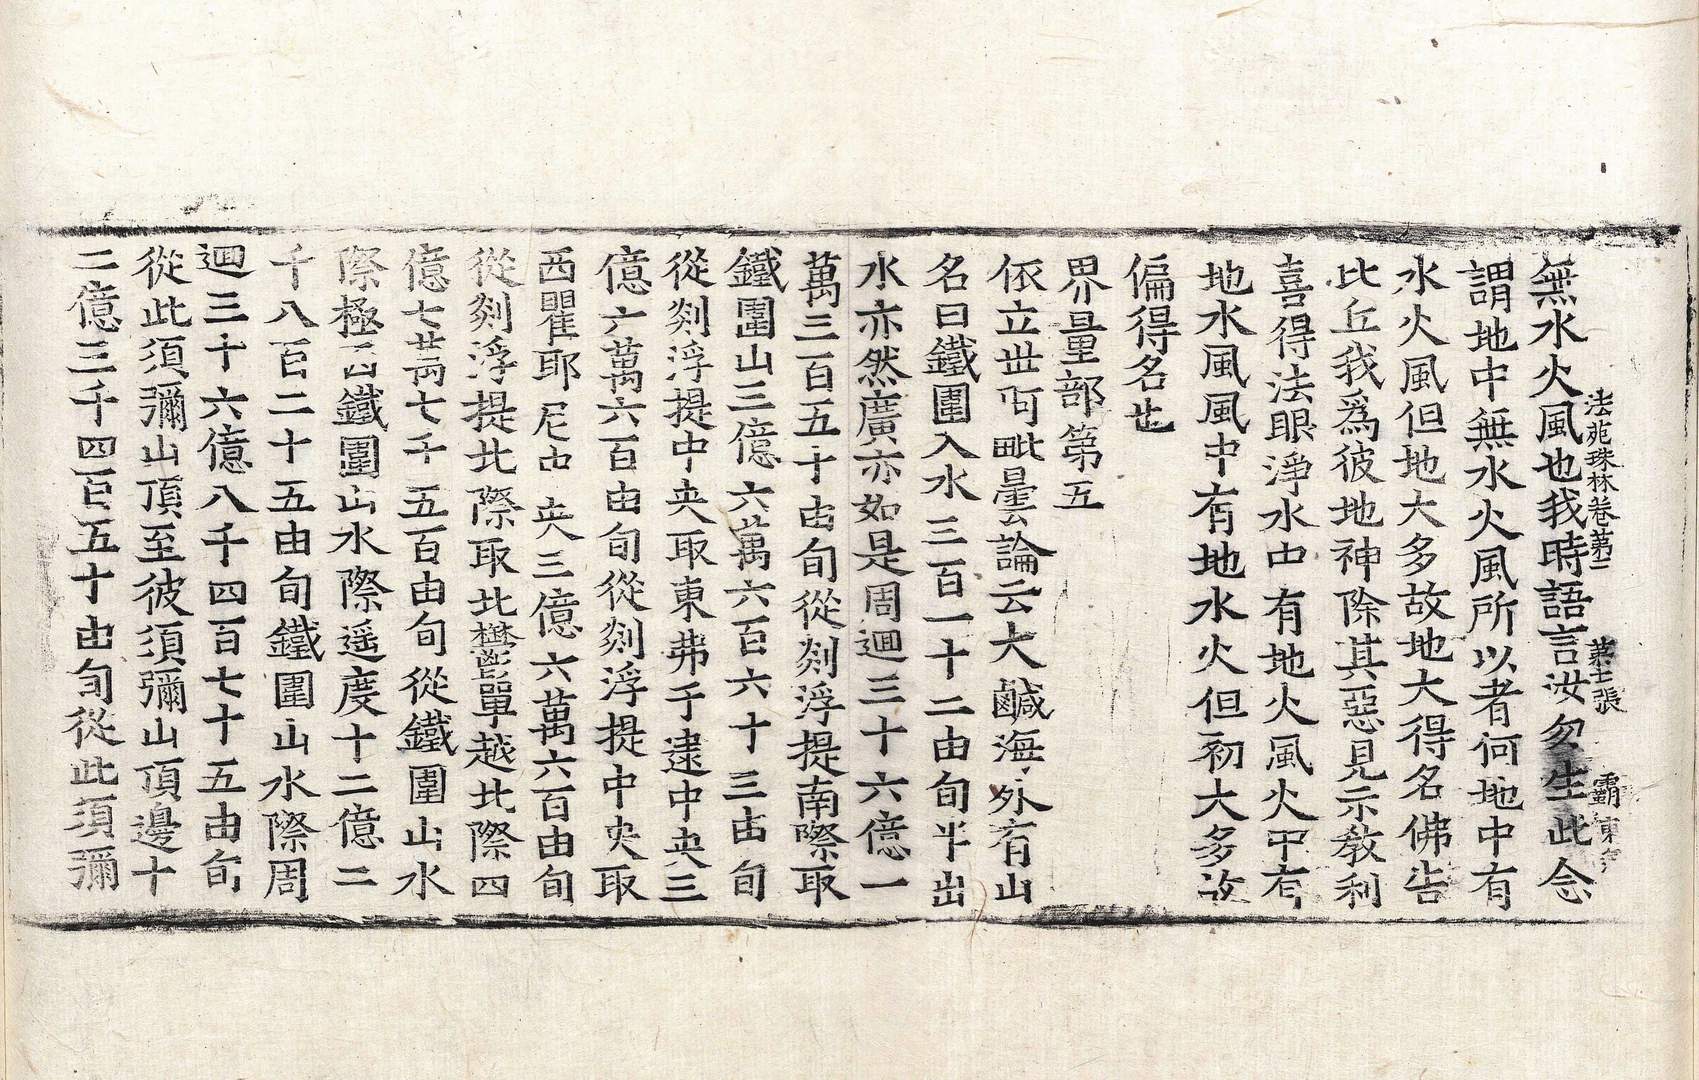 法苑珠林卷第二 第十七張 霸
無水火風也我時語言汝勿生此念
謂地中無水火風所以者何地中有
水火風但地大多故地大得名佛告
比丘我爲彼地神除其惡見示教利
喜得法眼淨水中有地火風火中有
地水風風中有地水火但初大多故
偏得名也
界量部第五
依立世阿毗曇論云大鹹海外有山
名曰鐵圍入水三百一十二由旬半出
水亦然廣亦如是周迴三十六億一
萬三百五十由旬從剡浮提南際取
鐵圍山三億六萬六百六十三由旬
從剡浮提中央取東弗于逮中央三
億六萬六百由旬從剡浮提中央取
西瞿耶尼中央三億六萬六百由旬
從剡浮提北際取北鬱單越北際四
億七萬七千五百由旬從鐵圍山水
際極西鐵圍山水際遥度十二億二
千八百二十五由旬鐵圍山水際周
迴三十六億八千四百七十五由旬
從此須彌山頂至彼須彌山頂邊十
二億三千四百五十由旬從此須彌